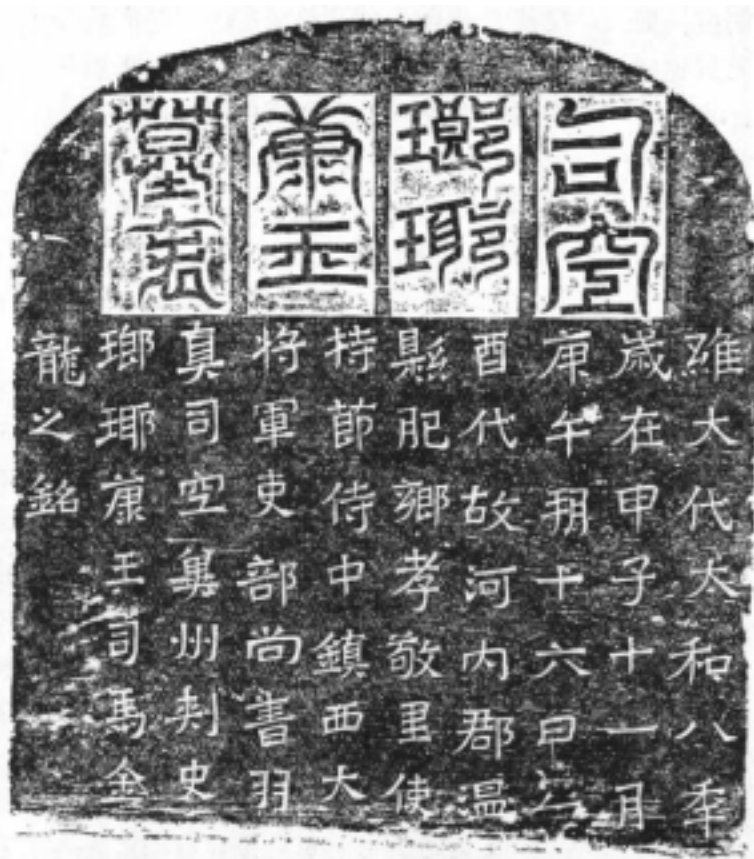 司空
瑯琊
康王
墓表
維大代大和八秊
歲在甲子十一月
庚午朔十六日乙
酉代故河內郡溫
縣肥鄉孝敬里使
持節侍中鎮西大
將軍吏部尚書羽
真司空冀州刺史
瑯琊康王司馬金
龍之銘